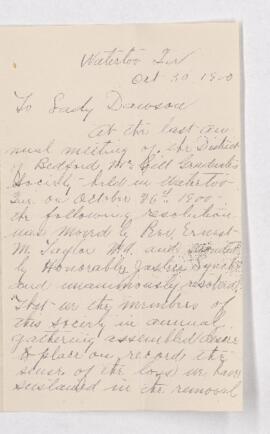 Waterloo
Oct 30 1900
To Lady Dawson
At the last an-
nual meeting of the District
of Bedford McGill Graduates
Society held in Waterloo
Que. on October 26th 1900 -
the following resolution
was moved by Rev. Ernest
M. Taylor M.A. and seconded
by Honorable Justice Lynch
and unanimously resolved
That we the members of
this society in annual
gathering assembled desire
to place on record the
sense of the loss we have
sustained in the removal